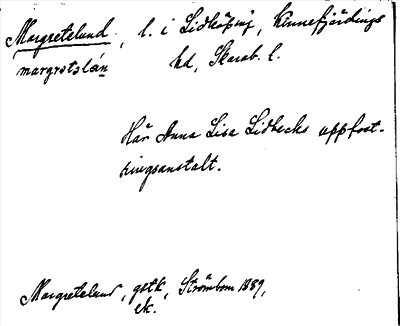 Margretelund, l. i Lidköping, Kinnefjärdings
margrətəlán hd, Skarab. l.
Här Anna Lisa Lidbecks uppfost-
ringsanstalt.
Margretelund, getk, Strömbom 1889,
ek.